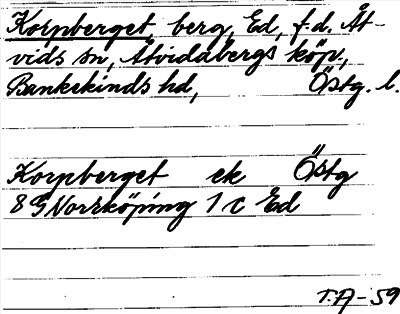 Korpberget, berg, Ed, f.d. Åt-
vids sn, Åtvidabergs köp.,
Bankekinds hd, Östg. l.
Korpberget ek Östg
8 G Norrköping 1 c Ed
T.A-59